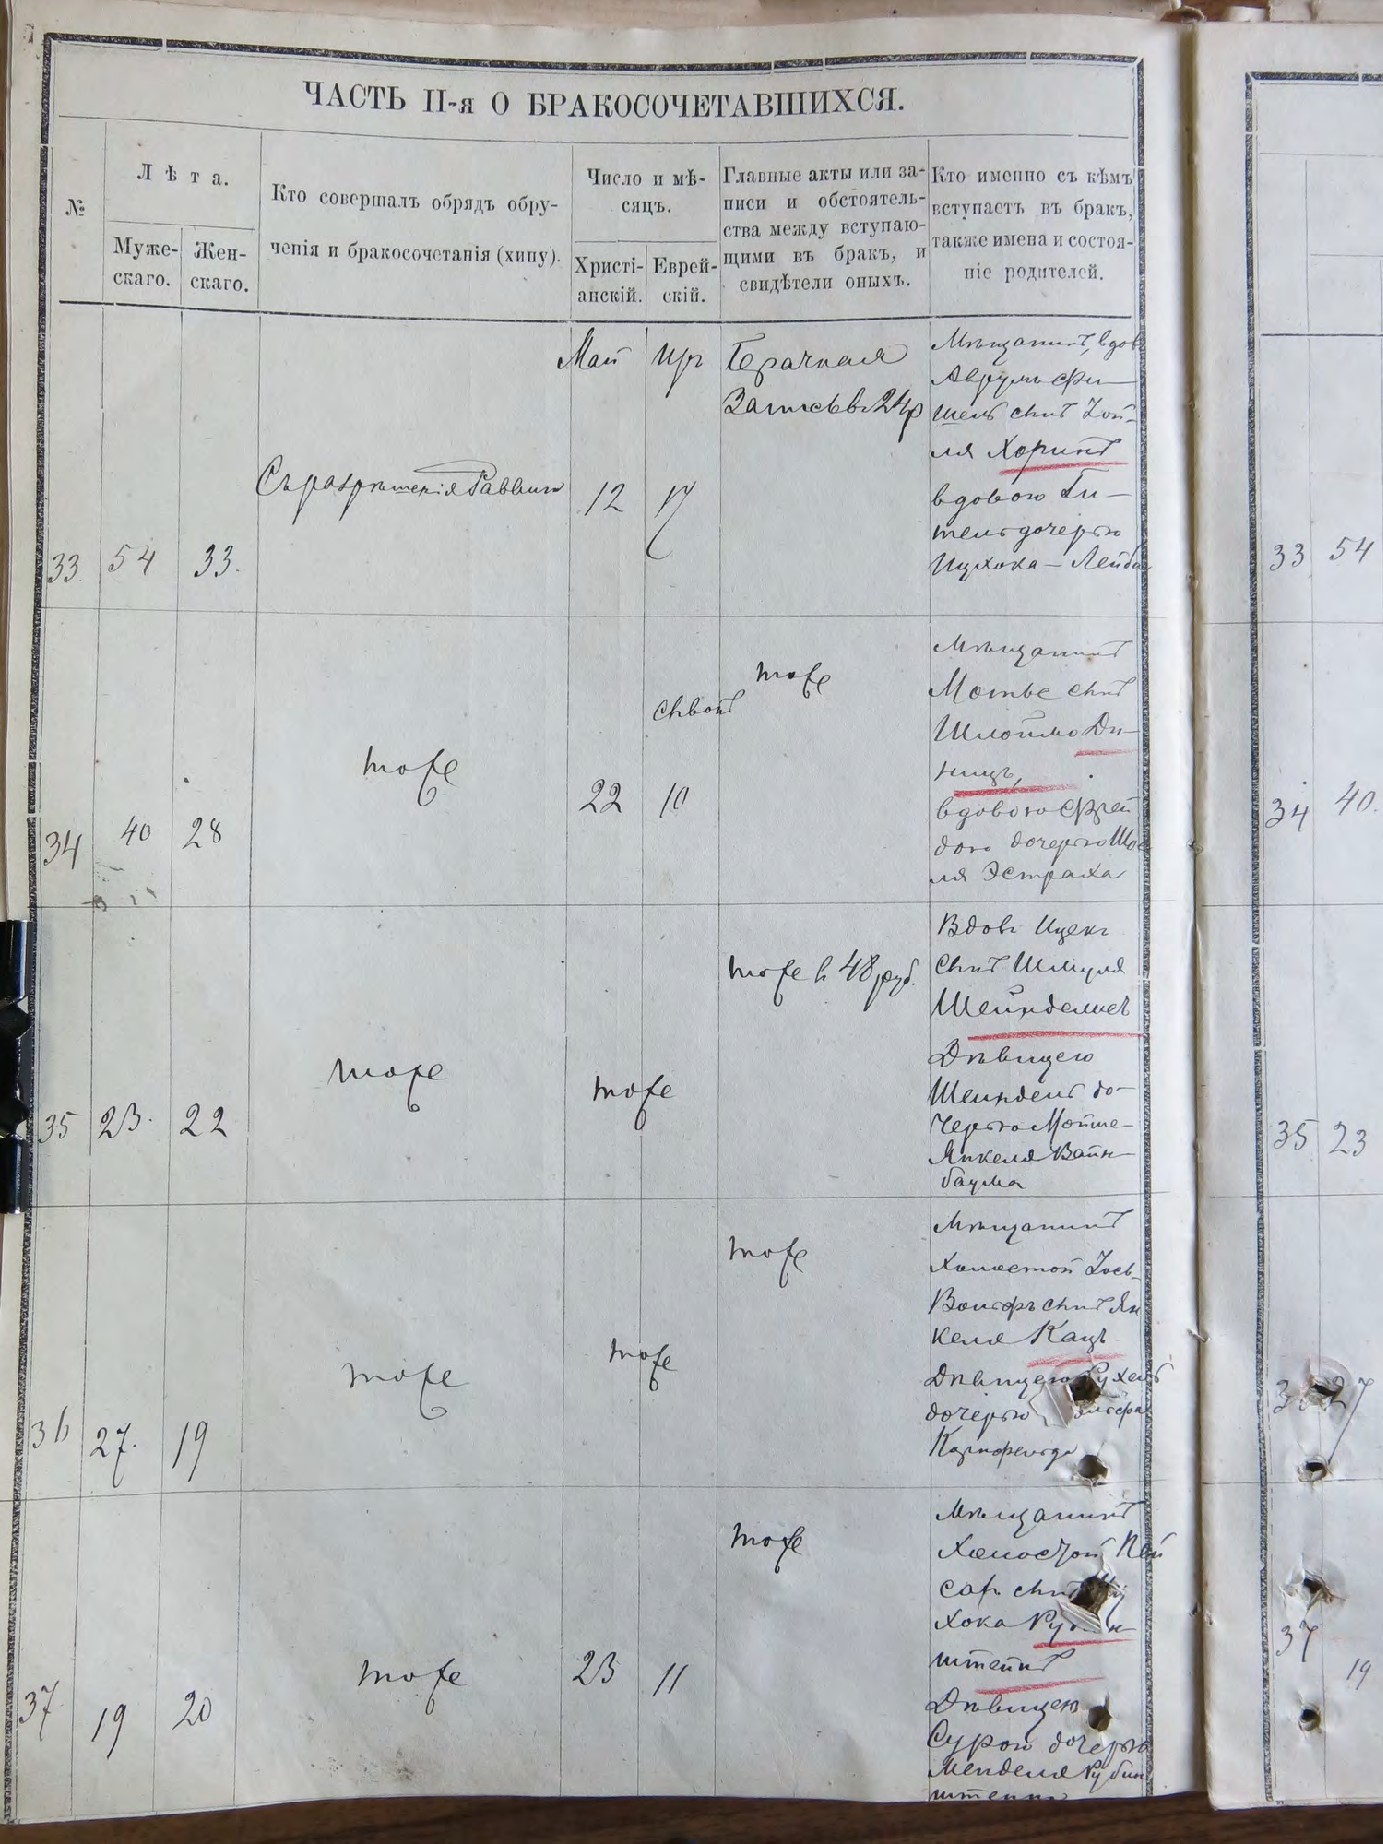 ЧАСТЬ II-я О БРАКОСОЧЕТАВШИХСЯ.
№
Лѣта.
Муже-
скаго.
Жен-
скаго.
Кто совершалъ обрядъ обру-
ченія и бракосочетанія (хипу).
Число и мѣ-
сяцъ.
Христі-
анскій.
Еврей-
скій.
Главные акты или за-
писи и обстоятель-
ства между вступаю-
щими въ бракъ, и
свидѣтели оныхъ.
Кто именно съ кѣмъ
вступаетъ въ бракъ,
также имена и состоя-
ніе родителей.
33
54
33.
Съ разрѣшенія Раввина
Май
12
Ияръ
17
Брачная
Запись въ 24 р
Мѣщанинъ, вдов
Аврумъ Фи-
шель сынъ Зой-
ля Хоринъ
вдовою Ги-
тель дочерью
Ицхока-Лейба
34
40
28
тоже
22
Сывонъ
10
тоже
Мѣщанинъ
Мотье сынъ
Шлоймо Ди-
ницъ,
вдовою Фрей
дою дочерью
ля Эстраха
35
23.
22
тоже
тоже
тоже в 48 руб.
Вдовъ Ицекъ
сынъ Шмуля
Шейнделисъ
Дѣвицею
Шейндель до-
черью Мойше-
Янкеля Вайн-
баума
36
27.
19
тоже
тоже
тоже
Мѣщанинъ
Холостой Зось-
Вольфъ сынъ Ян
келя Кацъ
Дѣвицею Рухель
дочерью
Карнфельда
37
19
20
тоже
23
11
тоже
Мѣщанинъ
Холостой Пей
сахъ сынъ
хока
штейнъ
Дѣвицею
Сурою дочерью
Менделя Рубин
штейна
33
54
34
40.
35
23
27
37
19